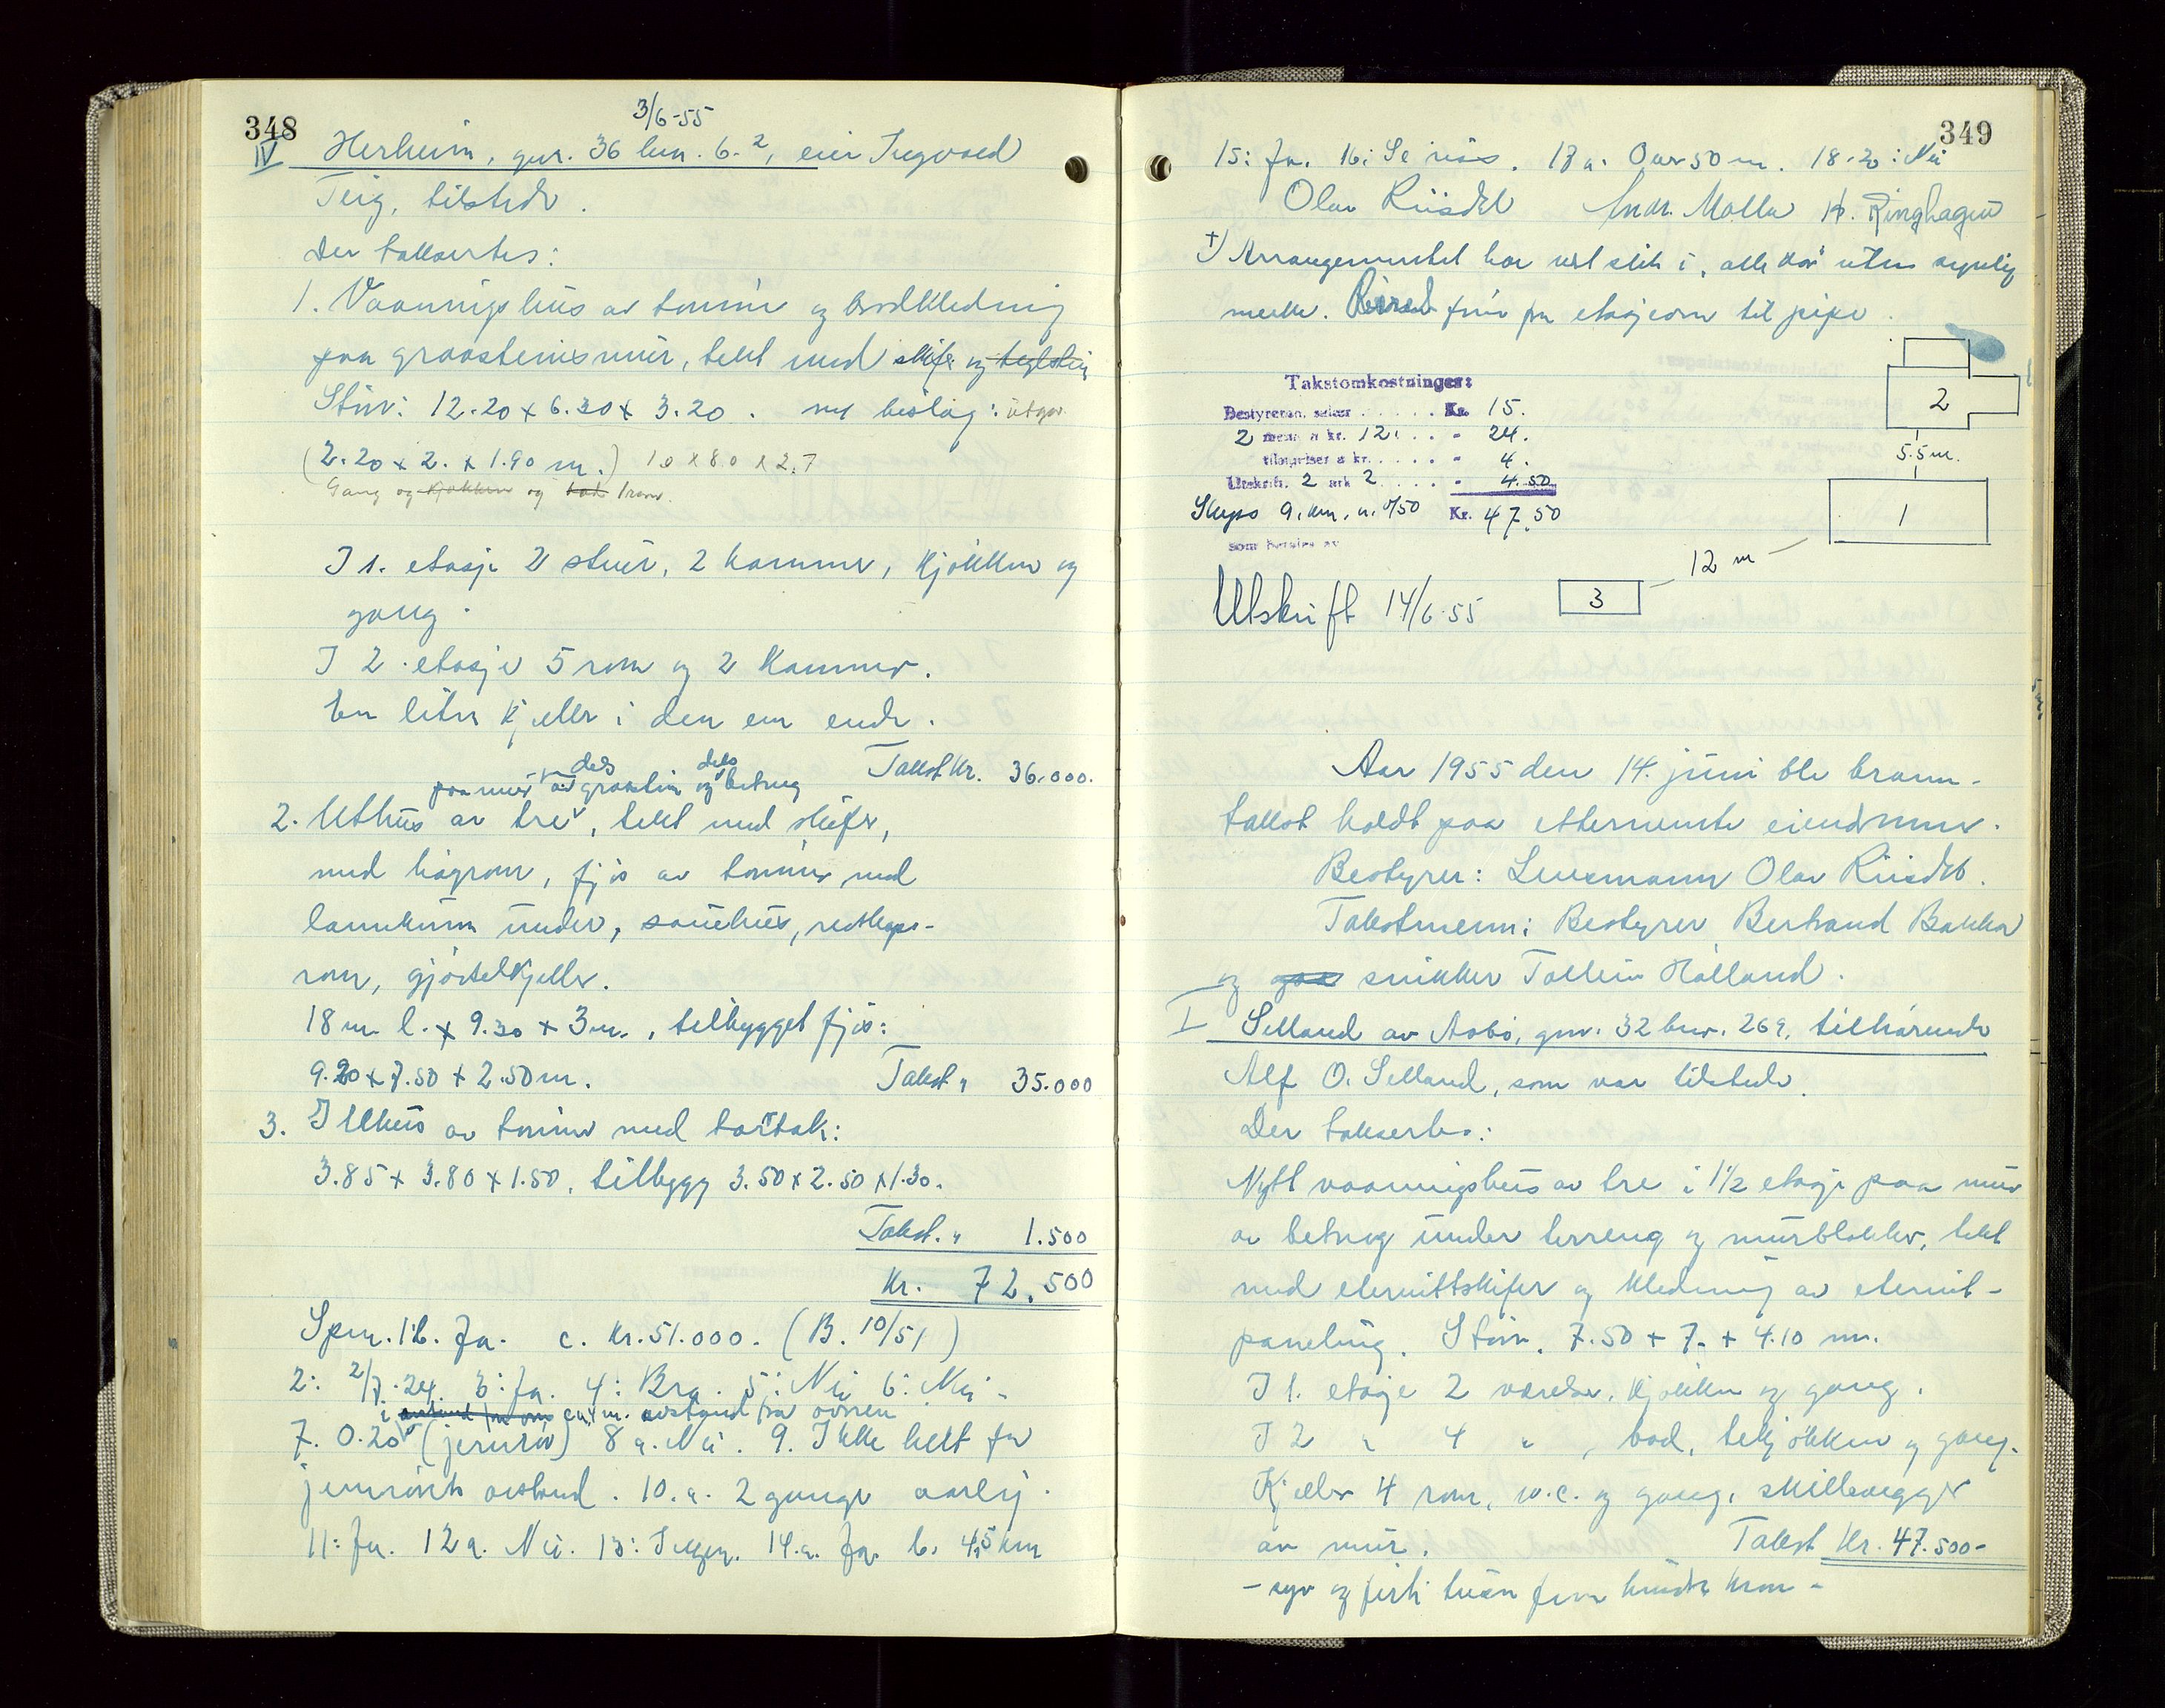 348
3/6-55
IV Herheim, gnr. 36 bnr. 6.², eier Ingvald
Teig, tilstede.
Der takseertes:
1. Vaaningshus av tømmer og bordkledning
paa graasteinsmur, tekt med skifer og teglstein
Størr: 12.20 x 6.30 x 3.20. utgør
(2.20 x 2. x 1.90 m.) 10 x 8.0 x 2.7
Gang og kjøkken og bad
I 1. etasje 2 stuer, 2 kammer, kjøkken og
gang.
I 2. etasje 5 rom og 2 kammer.
En liten kjeller i den ene ende.
Takst kr. 36.000.
paa mur av dels graastein og dels betong
2. Uthus av tre, tekt med skifer,
med høyrom, fjøs av tømmer med
landkum under, sauehus, redskaps-
rom, gjødselkjeller.
18 m l. x 9.30 x 3 m., tilbygget fjøs:
9.20 x 7.50 x 2.50 m. Takst " 35.000
3. Ildhus av tømmer med torvtak:
3.85 x 3.80 x 1.50, tilbygg 3.50 x 2.50 x 1.30.
Takst. " 1.500
Kr. 72.500
Spm. 1.b. Ja. c. Kr. 51.000. (B. 10/51)
2: 2/7.-24. 3: Ja. 4: Bra. 5: Nei 6: Nei.
i ca. 1 m. avstand fra ovnen
7. 0.20 (jernrør) 8 a. Nei. 9. Ikke helt for
jernrørets avstand. 10. a. 2 ganger aarlig.
11: Ja. 12 a. Nei. 13: Ingen. 14.a. Ja. b. 4,5 km
349
15: Ja. 16: Se riss. 17 a. Over 50 m. 18-20: Nei
Olav Riisdal Andr. Molla H. Ringhagen
+) Arrangementet har vert slik i alle aar uten synlig
merke. Røret fører fra etasjeovn til pipe.
Takstomkostninger:
Bestyreren, salær . . . . . Kr. 15.
2 menn a kr. 12. . . " 24.
tilstyrlser a kr. . . . . " 4.
Utskrift. 2 ark 2 . . . . " 4.50
Skyss 9. km. a. 0/50 Kr. 47.50
som betales av
2
5.5 m.
1
12 m
3
Utskrift 14/6-55
Aar 1955 den 14. juni ble brann-
takst holdt paa etternemnte eiendommer.
Bestyrer: Lensmann Olav Riisdal.
Takstmenn: Bestyrer Bertrand Bakka
og snikker Tollein Hålland.
I Selland av Aabø, gnr. 32 bnr. 269, tilhørende
Alf O. Selland, som var tilstede.
Der taksertes:
Nytt vaaningshus av tre i 1 1/2 etasje paa mur
av betong under terreng og murblokker, tekt
med eternittskifer og kledning av eternit-
paneling. Størr. 7.50 + 7. + 4.10 m.
I 1. etasje 2 værelser, kjøkken og gang.
I 2 " 4 " , bad, tekjøkken og gang.
Kjeller 4 rom, w.c. og gang, skillevegger
av mur. Takst Kr. 47.500-
- syv og førti tusen fem hundre kroner -